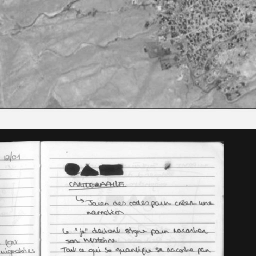 CARTOGRAPHIE
↳ Jouer des codes pour créer une
narration
Le "je" devient signe pour raconter
son histoire
Tout ce qui se quantifie se raconte par